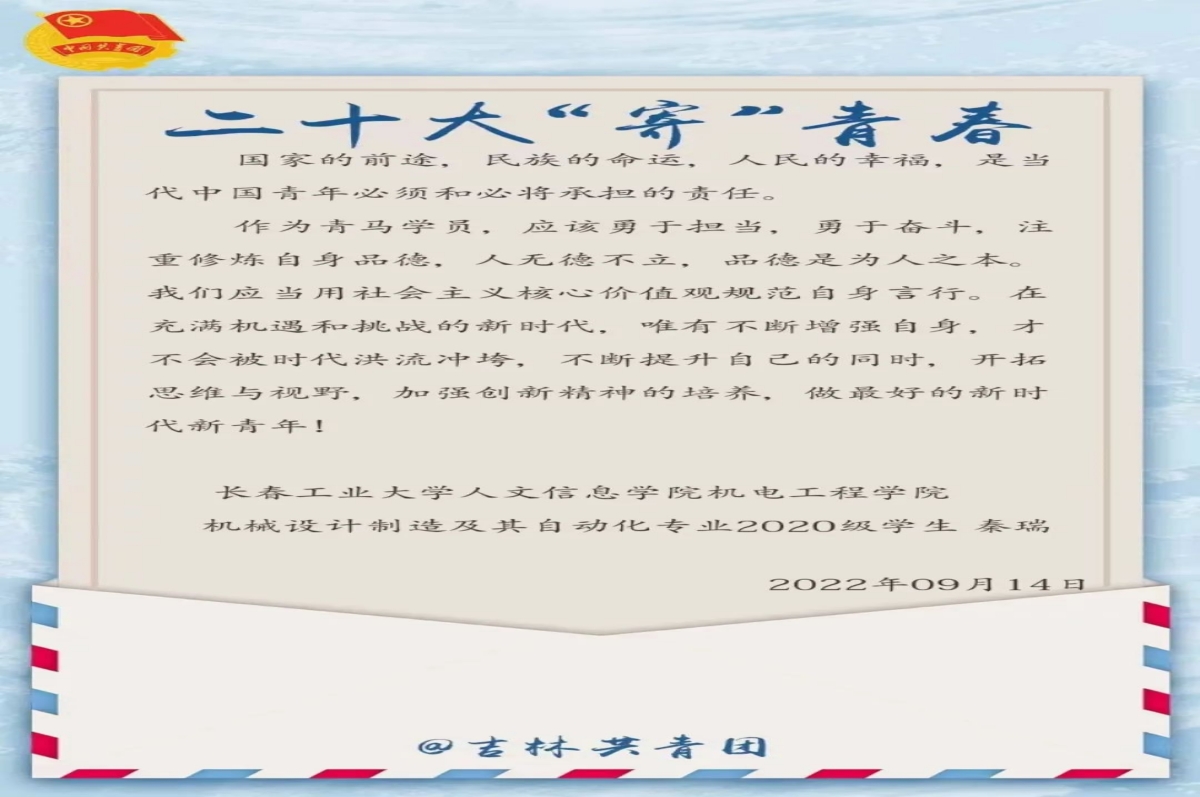 中国共青团
二十大“寄”青春
国家的前途，民族的命运，人民的幸福，是当
代中国青年必须和必将承担的责任。
作为青马学员，应该勇于担当，勇于奋斗，注
重修炼自身品德，人无德不立，品德是为人之本。
我们应当用社会主义核心价值观规范自身言行。在
充满机遇和挑战的新时代，唯有不断增强自身，才
不会被时代洪流冲垮，不断提升自己的同时，开拓
思维与视野，加强创新精神的培养，做最好的新时
代新青年！
长春工业大学人文信息学院机电工程学院
机械设计制造及其自动化专业2020级学生 秦瑞
2022年09月14日
@吉林共青团